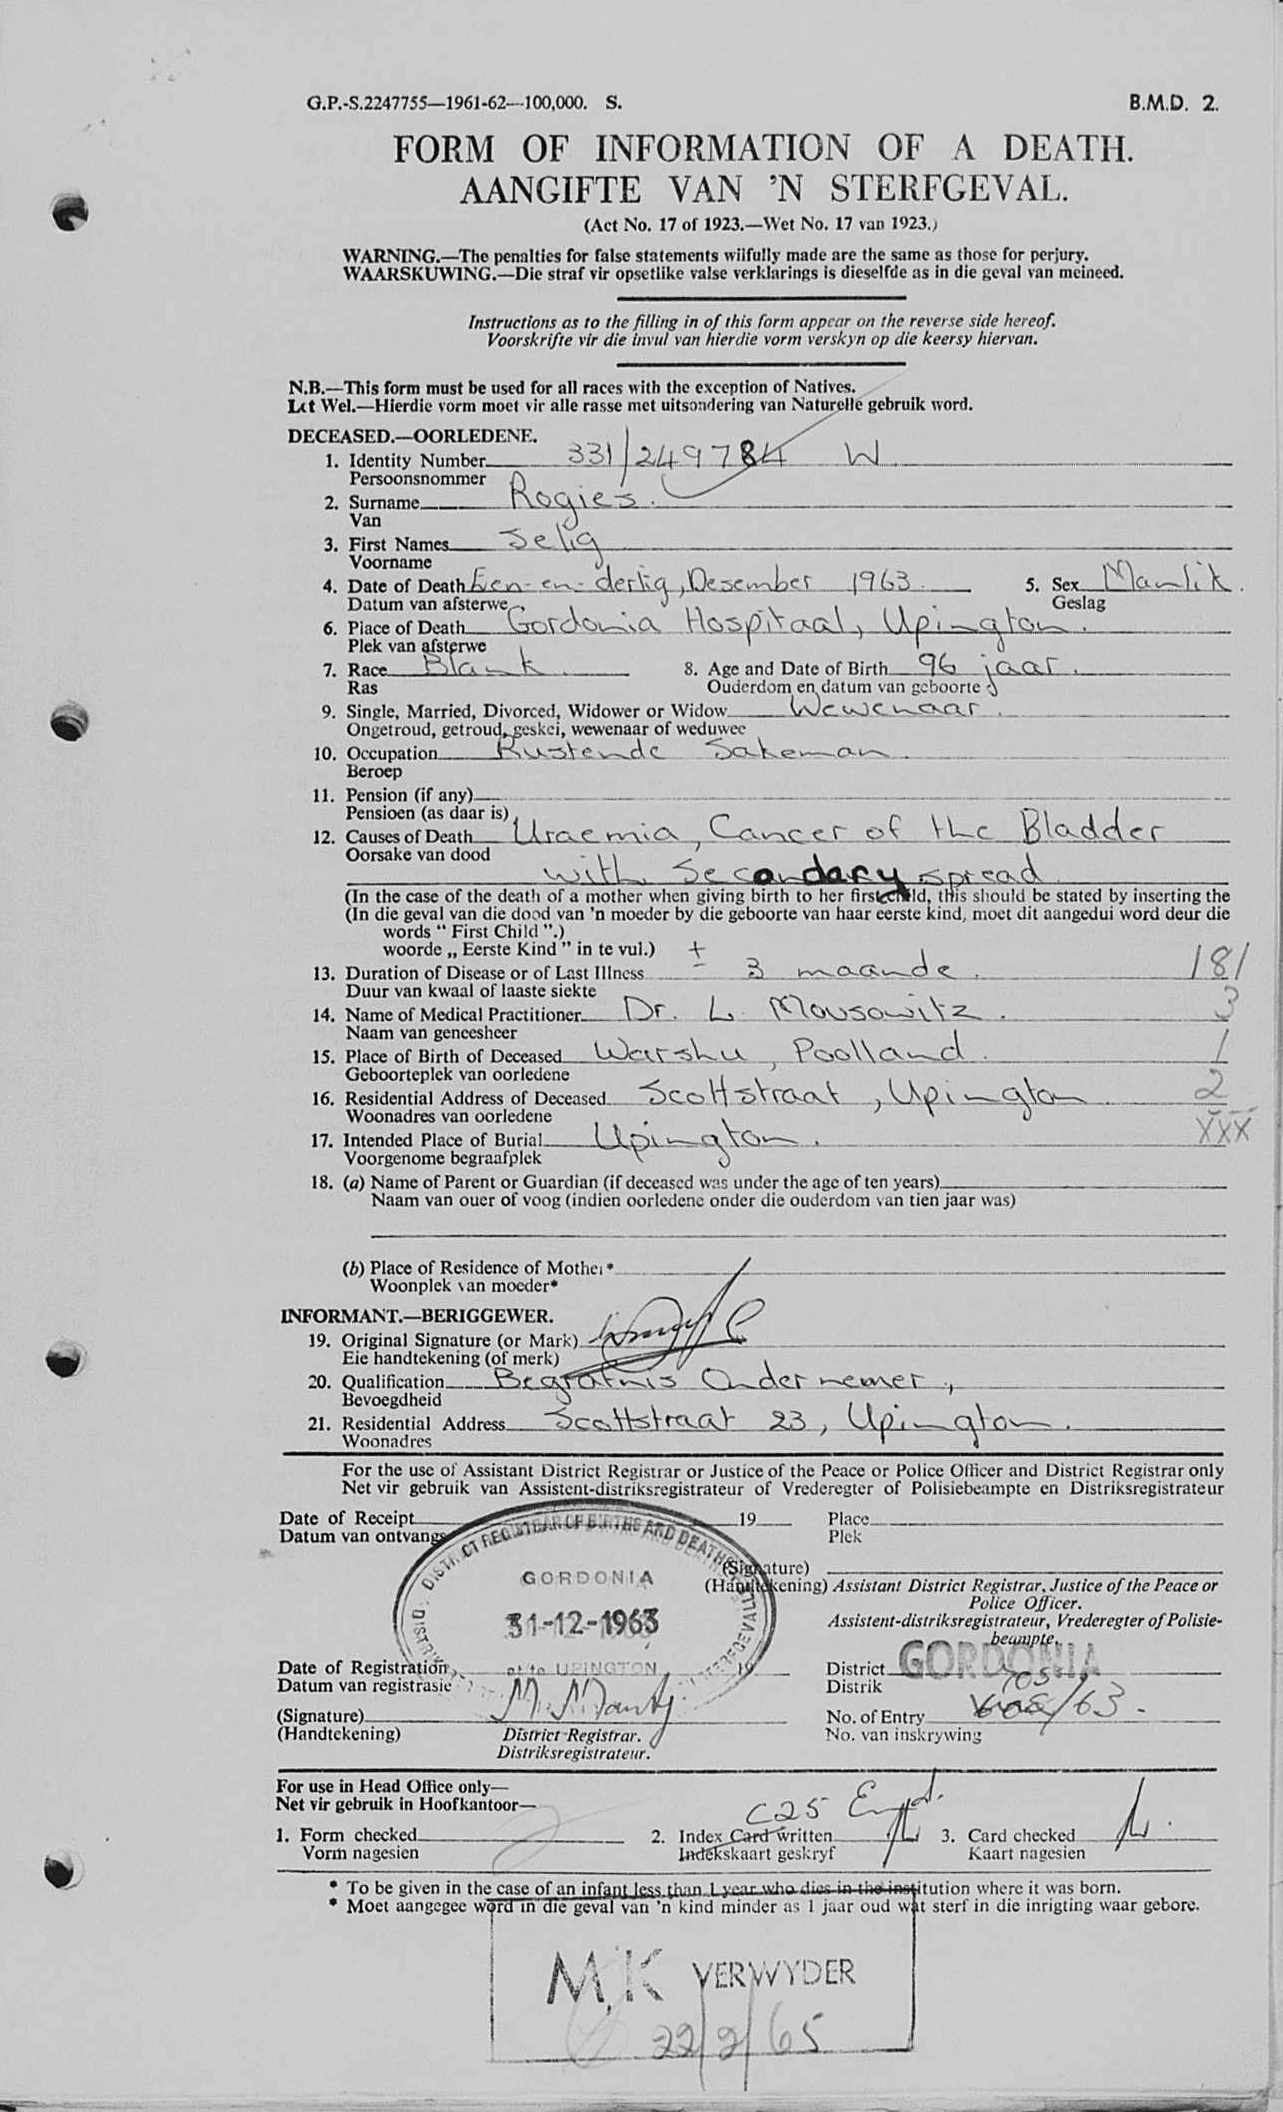 G.P.-S.2247755—1961-62—100,000. S. B.M.D. 2.
FORM OF INFORMATION OF A DEATH.
AANGIFTE VAN 'N STERFGEVAL.
(Act No. 17 of 1923.—Wet No. 17 van 1923.)
WARNING.—The penalties for false statements wilfully made are the same as those for perjury.
WAARSKUWING.—Die straf vir opsetlike valse verklarings is dieselfde as in die geval van meineed.
Instructions as to the filling in of this form appear on the reverse side hereof.
Voorskrifte vir die invul van hierdie vorm verskyn op die keersy hiervan.
N.B.—This form must be used for all races with the exception of Natives.
Let Wel.—Hierdie vorm moet vir alle rasse met uitsondering van Naturelle gebruik word.
DECEASED.—OORLEDENE.
1. Identity Number 331/249784 W
Persoonsnommer
2. Surname Rogies.
Van
3. First Names Selig
Voorname
4. Date of Death Een-en-dertig, Desember 1963. 5. Sex Manlik.
Datum van afsterwe Geslag
6. Place of Death Gordonia Hospitaal, Upington.
Plek van afsterwe
7. Race Blank 8. Age and Date of Birth 96 jaar.
Ras Ouderdom en datum van geboorte
9. Single, Married, Divorced, Widower or Widow Wewenaar.
Ongetroud, getroud, geskei, wewenaar of weduwee
10. Occupation Rustende Sakeman.
Beroep
11. Pension (if any)
Pensioen (as daar is)
12. Causes of Death Uraemia, Cancer of the Bladder
Oorsake van dood
with Secondary spread
(In the case of the death of a mother when giving birth to her first child, this should be stated by inserting the
(In die geval van die dood van 'n moeder by die geboorte van haar eerste kind, moet dit aangedui word deur die
words " First Child ".)
woorde „ Eerste Kind " in te vul.)
13. Duration of Disease or of Last Illness ± 3 maande. 181
Duur van kwaal of laaste siekte
14. Name of Medical Practitioner Dr. L. Mousowitz. 3
Naam van geneesheer
15. Place of Birth of Deceased Warshu, Poolland. 1
Geboorteplek van oorledene
16. Residential Address of Deceased Scottstraat, Upington 2
Woonadres van oorledene
17. Intended Place of Burial Upington. XXX
Voorgenome begraafplek
18. (a) Name of Parent or Guardian (if deceased was under the age of ten years)
Naam van ouer of voog (indien oorledene onder die ouderdom van tien jaar was)
(b) Place of Residence of Mother*
Woonplek van moeder*
INFORMANT.—BERIGGEWER.
19. Original Signature (or Mark)
Eie handtekening (of merk)
20. Qualification Begrafnis Ondernemer,
Bevoegdheid
21. Residential Address Scottstraat 23, Upington.
Woonadres
For the use of Assistant District Registrar or Justice of the Peace or Police Officer and District Registrar only
Net vir gebruik van Assistent-distriksregistrateur of Vrederegter of Polisiebeampte en Distriksregistrateur
Date of Receipt 19 Place
Datum van ontvangs Plek
DISTRICT REGISTRAR OF BIRTHS AND DEATHS
(Signature)
GORDONIA
(Handtekening) Assistant District Registrar, Justice of the Peace or
Police Officer.
31-12-1963
Assistent-distriksregistrateur, Vrederegter of Polisie-
beampte.
Date of Registration at/te UPINGTON 19 District GORDONIA
Datum van registrasie Distrik
(Signature) No. of Entry 705/63.
(Handtekening) District Registrar. No. van inskrywing
Distriksregistrateur.
For use in Head Office only—
Net vir gebruik in Hoofkantoor—
C25
1. Form checked 2. Index Card written 3. Card checked
Vorm nagesien Indekskaart geskryf Kaart nagesien
* To be given in the case of an infant less than 1 year who dies in the institution where it was born.
* Moet aangegee word in die geval van 'n kind minder as 1 jaar oud wat sterf in die inrigting waar gebore.
M.K VERWYDER
22/2/65